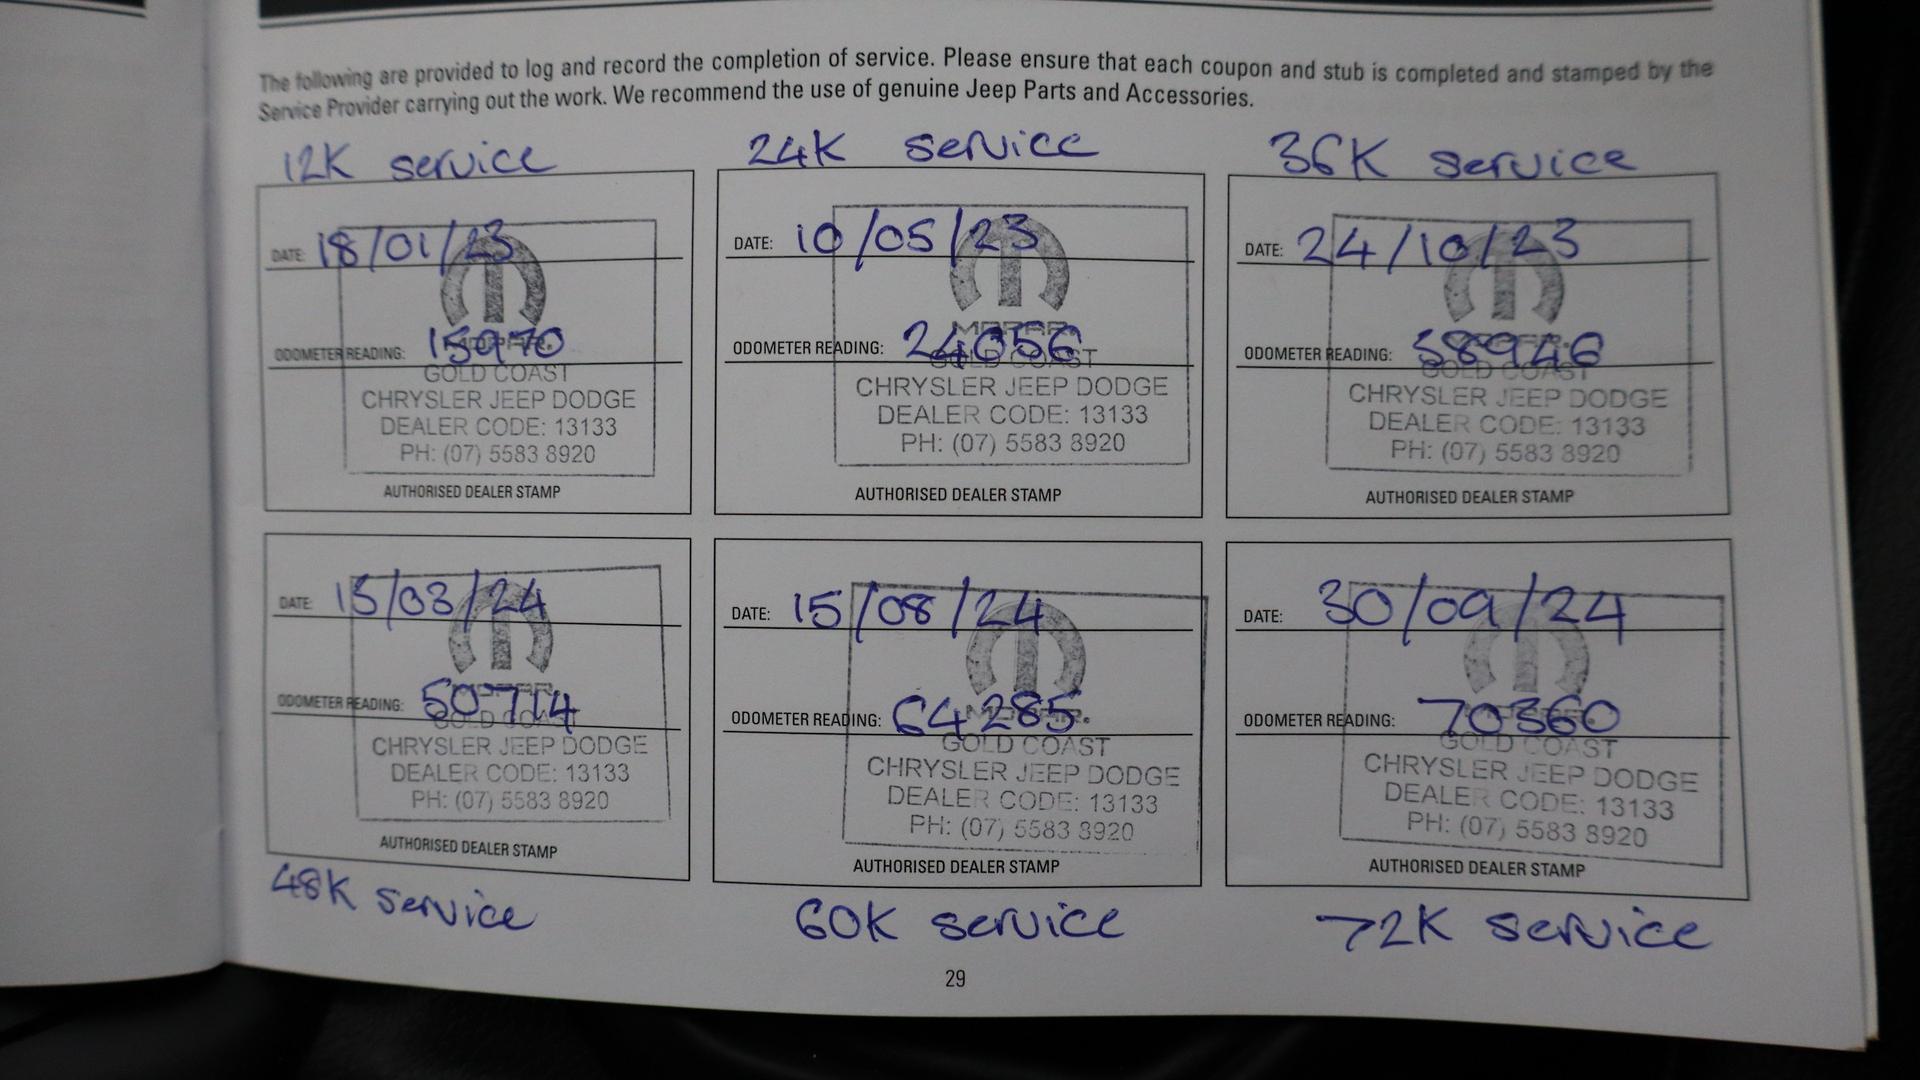 The following are provided to log and record the completion of service. Please ensure that each coupon and stub is completed and stamped by the
Service Provider carrying out the work. We recommend the use of genuine Jeep Parts and Accessories.
12K service
DATE: 18/01/23
ODOMETER READING:
MOPAR.
GOLD COAST
CHRYSLER JEEP DODGE
DEALER CODE: 13133
PH: (07) 5583 8920
AUTHORISED DEALER STAMP
24K service
DATE: 10/05/23
ODOMETER READING: 24056
MOPAR.
GOLD COAST
CHRYSLER JEEP DODGE
DEALER CODE: 13133
PH: (07) 5583 8920
AUTHORISED DEALER STAMP
36K service
DATE: 24/10/23
ODOMETER READING: 38946
GOLD COAST
CHRYSLER JEEP DODGE
DEALER CODE: 13133
PH: (07) 5583 8920
AUTHORISED DEALER STAMP
DATE: 15/03/24
ODOMETER READING: 50714
MOPAR.
GOLD COAST
CHRYSLER JEEP DODGE
DEALER CODE: 13133
PH: (07) 5583 8920
AUTHORISED DEALER STAMP
48K service
DATE: 15/08/24
ODOMETER READING: 64285
MOPAR.
GOLD COAST
CHRYSLER JEEP DODGE
DEALER CODE: 13133
PH: (07) 5583 8920
AUTHORISED DEALER STAMP
60K service
DATE: 30/09/24
ODOMETER READING: 70360
GOLD COAST
CHRYSLER JEEP DODGE
DEALER CODE: 13133
PH: (07) 5583 8920
AUTHORISED DEALER STAMP
72K service
29